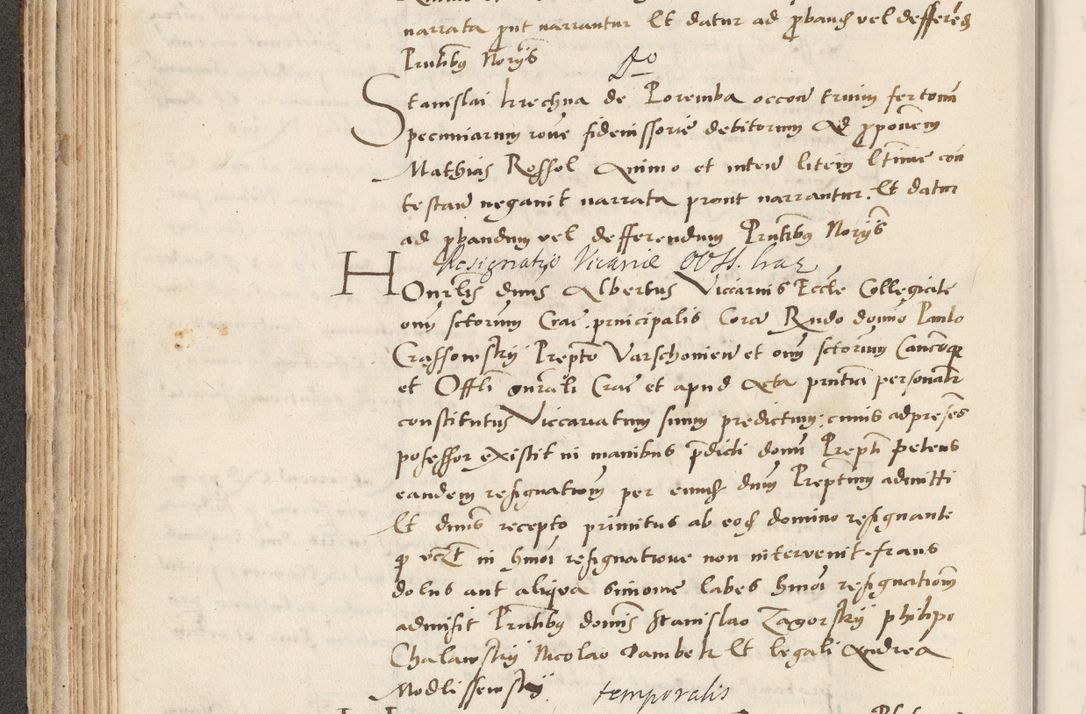 narrata put narrantur Et datur ad pband vel defferend
Pntibus Noriis
Do
Stanislai Krechna de Poremba occon trium fertonum
Pecuniarum rone fideiussorie debitorum Ad pponem
Mathias Rossol Animo et inten litem ltime con
testan negavit narrata prout narrantur. Et datur
ad pbandum vel defferendum Pntibus Noriis
Resignatio Vicariae OO SS. Crac
Honrlis dnus Albertus Viccarius Eccle Collegiate
oniu sctorum Crac principalis Cora Rndo domino Paulo
Crassowsky Prepto Varschovien et oniu sctorum Canonicoque
et Offli gnrali Crac et apud Acta pntia personaliter
constitutus Viccariatum suum predictum: cuius ad presens
posessor existit in manibus pdicti domi Prepti petens
eandem resignationem per eund dnum Preptum admitti
Et dnus recepto primitus ab eod domino resignante
q in hmoi resignatione non intervenit fraus
dolus aut aliqua simonie labes hmoi resignationem
admisit Pntibus domis Stanislao Zagorsky philipo
Chalawsky Nicolao Dambek Et legali Andrea
Modlissewsky
temporalis